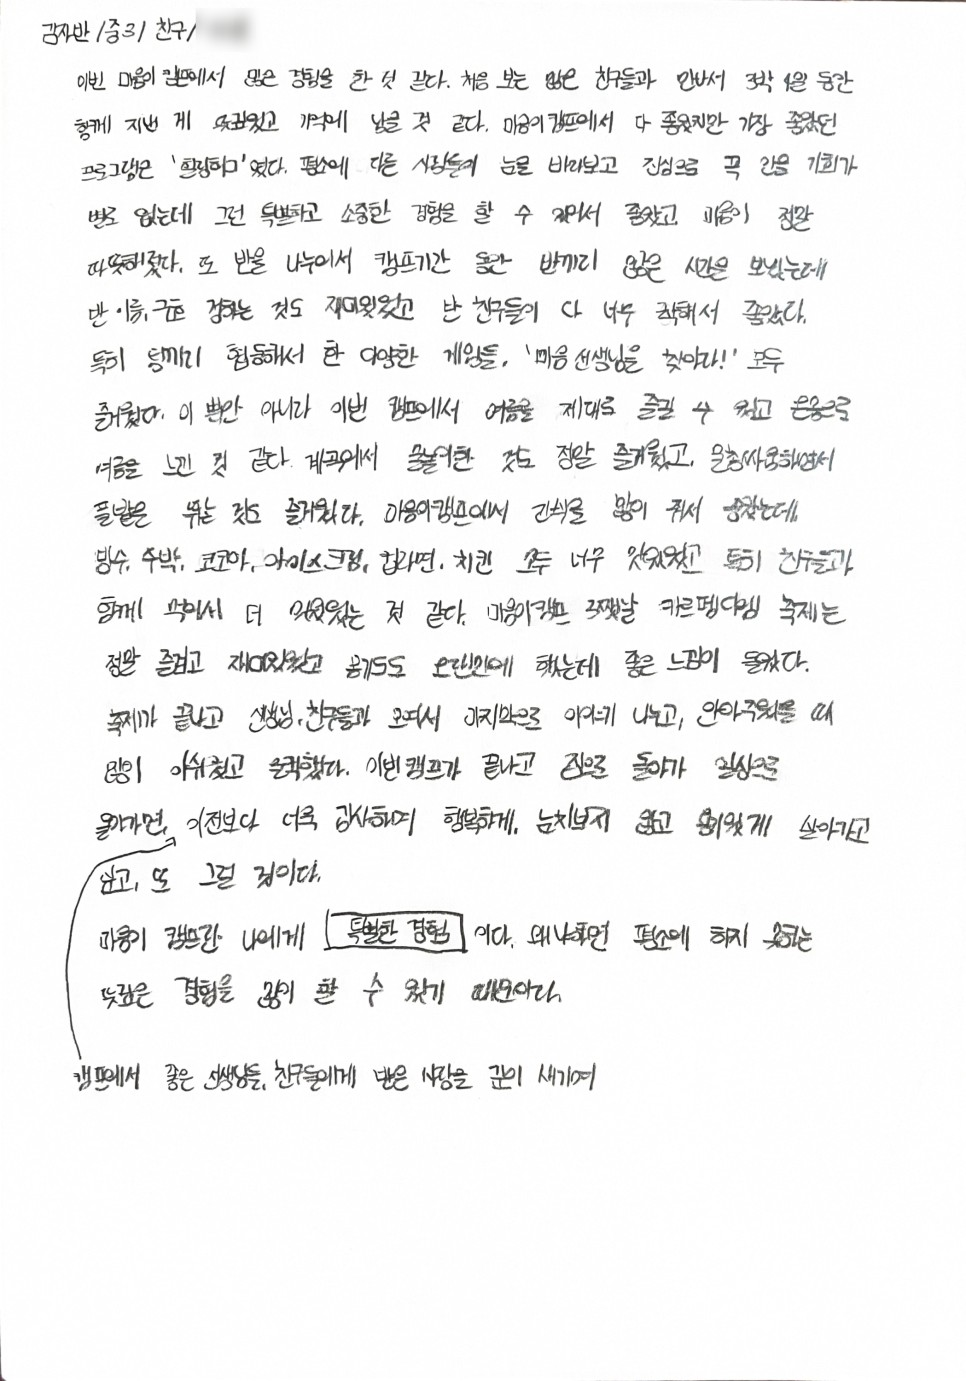 감자반 / 중3 / 친구 /
이번 마음이 캠프에서 많은 경험을 한 것 같다. 처음 보는 많은 친구들과 만나서 3박 4일 동안
함께 지낸 게 뜻깊었고 기억에 남을 것 같다. 마음이캠프에서 다 좋았지만 가장 좋았던
프로그램은 '힐링허그'였다. 평소에 다른 사람들의 눈을 바라보고 진심으로 꼭 안을 기회가
별로 없는데 그런 특별하고 소중한 경험을 할 수 있어서 좋았고 마음이 정말
따뜻해졌다. 또 반을 나누어서 캠프기간 동안 반끼리 많은 시간을 보냈는데
반 이름, 구호 정하는 것도 재미있었고 반 친구들이 다 너무 착해서 좋았다.
특히 팀끼리 협동해서 한 다양한 게임들, '마음 선생님을 찾아라!' 모두
즐거웠다. 이 뿐만 아니라 이번 캠프에서 여름을 제대로 즐길 수 있었고 온몸으로
여름을 느낀 것 같다. 계곡에서 물놀이한 것도 정말 즐거웠고, 물총싸움하면서
풀밭을 뛰는 것도 즐거웠다. 마음이캠프에서 간식을 많이 줘서 좋았는데,
빙수, 수박, 코코아, 아이스크림, 컵라면, 치킨 모두 너무 맛있었고 특히 친구들과
함께 먹어서 더 맛있었는 것 같다. 마음이캠프 셋쨋날 카르페디엠 축제는
정말 즐겁고 재미있었고 공기도 오랜만에 했는데 좋은 느낌이 들었다.
축제가 끝나고 선생님, 친구들과 모여서 마지막으로 이야기 나누고, 안아주었을 때
많이 아쉬웠고 울컥했다. 이번 캠프가 끝나고 집으로 돌아가 일상으로
돌아가면, 이전보다 더욱 감사하며 행복하게, 눈치보지 않고 용기있게 살아가고
싶고, 또 그럴 것이다.
마음이 캠프란 나에게 특별한 경험 이다. 왜냐하면 평소에 하지 못하는
뜻깊은 경험을 많이 할 수 있었기 때문이다.
캠프에서 좋은 선생님들, 친구들에게 받은 사랑을 깊이 새기며